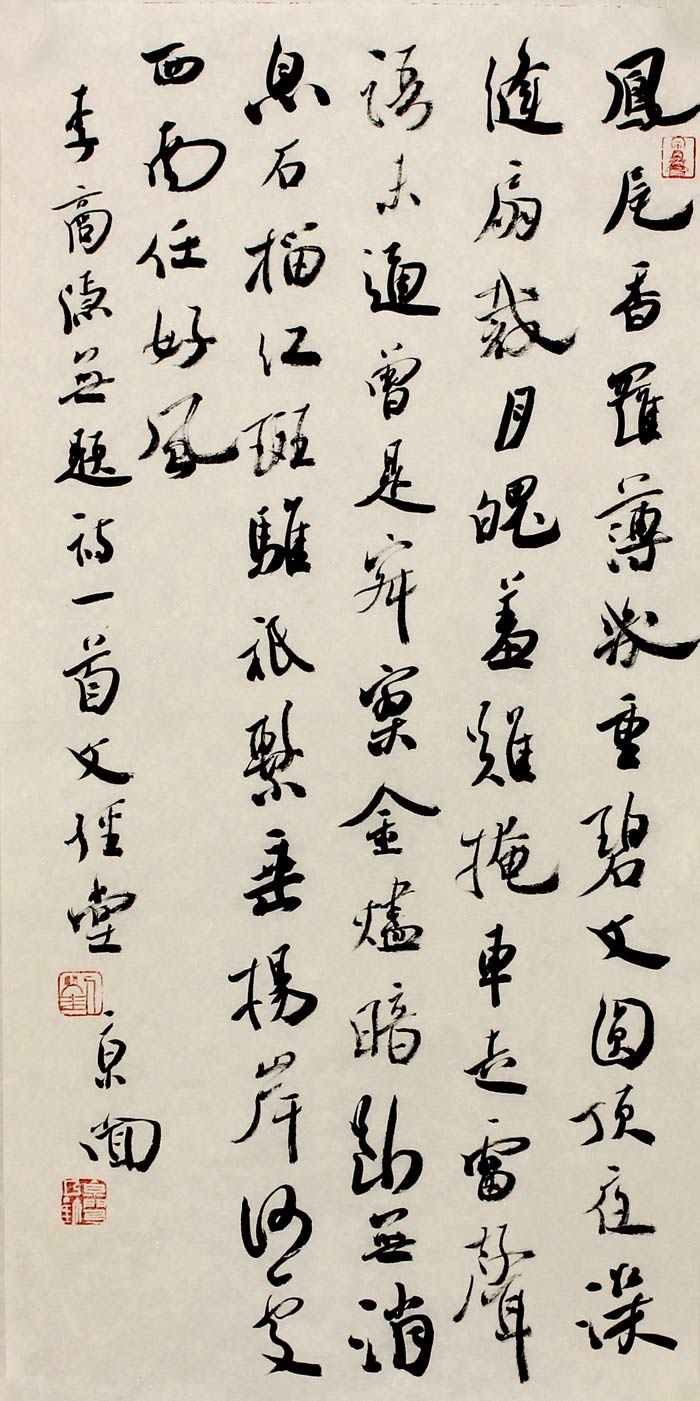 鳳尾香羅薄幾重碧文圓頂夜深
縫扇裁月魄羞難掩車走雷聲
語未通曾是寂寥金燼暗斷無消
息石榴紅斑騅祇繫垂楊岸何處
西南任好風
李商隱無題詩一首文經堂